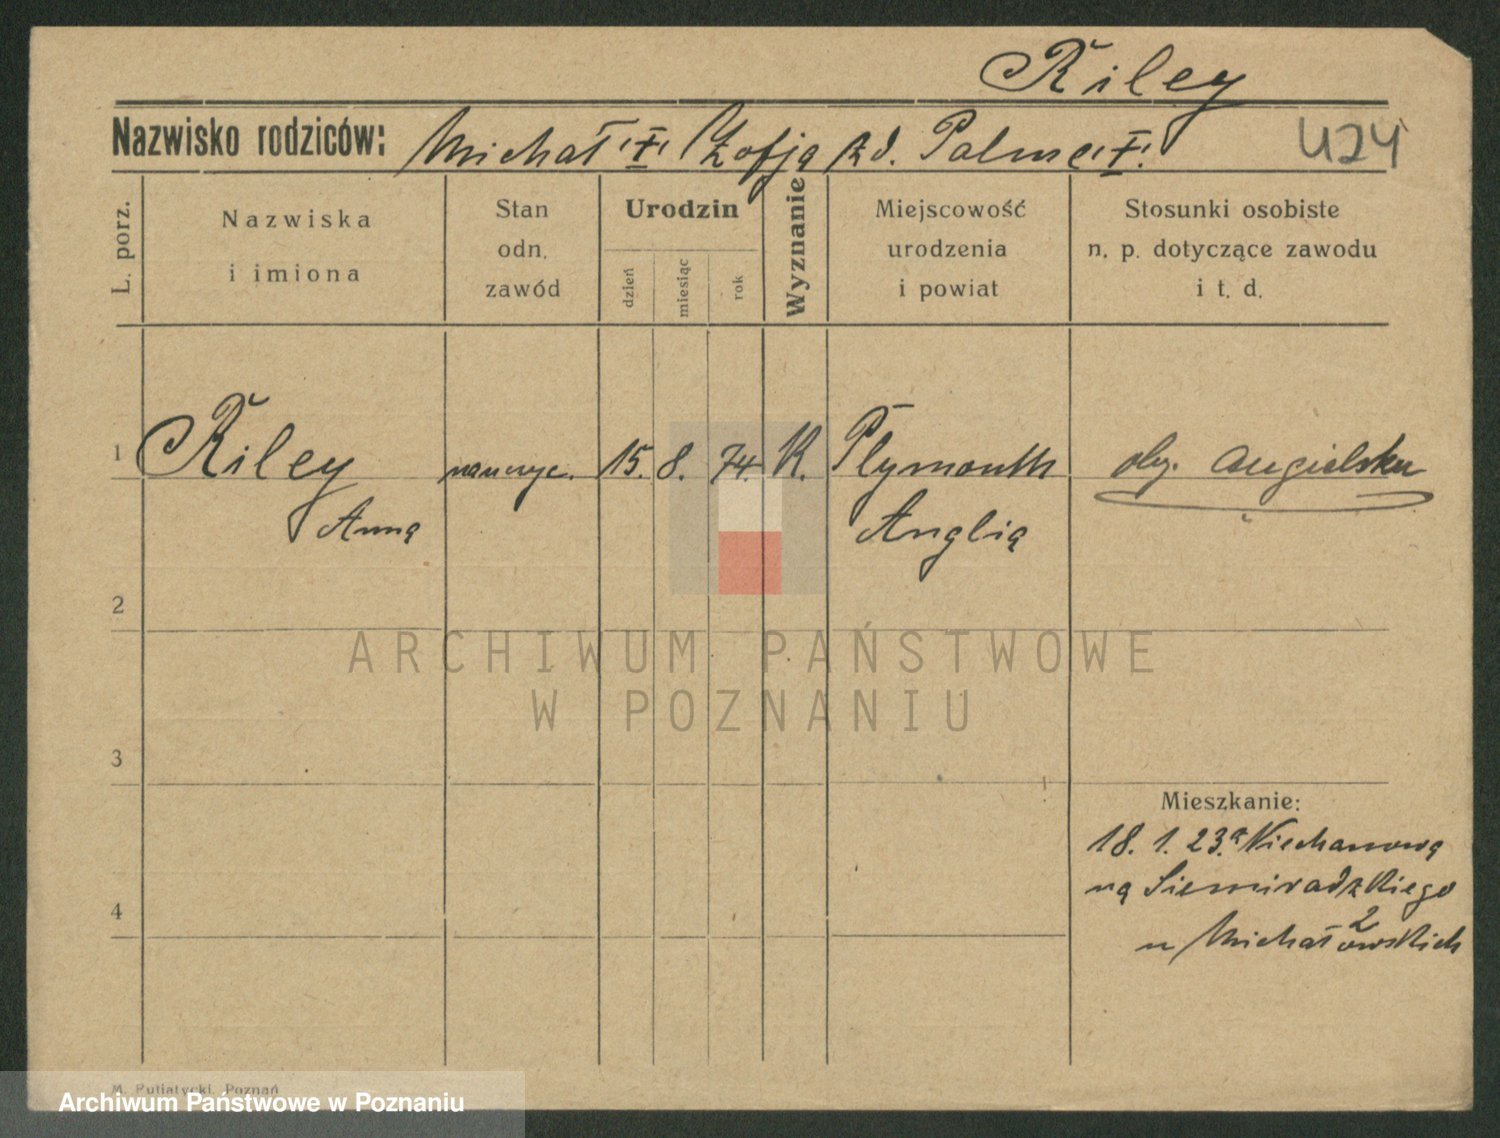 Riley
Nazwisko rodziców: Michał "†" Zofja zd. Palmer "†"
424
L. porz.
Nazwiska
i imiona
Stan
odn.
zawód
Urodzin
dzień
miesiąc
rok
Wyznanie
Miejscowość
urodzenia
i powiat
Stosunki osobiste
n. p. dotyczące zawodu
i t. d.
1 Riley nauczyc. 15. 8. 74. K. Plymouth oby. angielska
Anna Anglia
2
ARCHIWUM PAŃSTWOWE
W POZNANIU
3
Mieszkanie:
18. 1. 23. z Niechanowa
na Siemiradzkiego
2
u Michałowskich
4
M. Putiatycki, Poznań
Archiwum Państwowe w Poznaniu